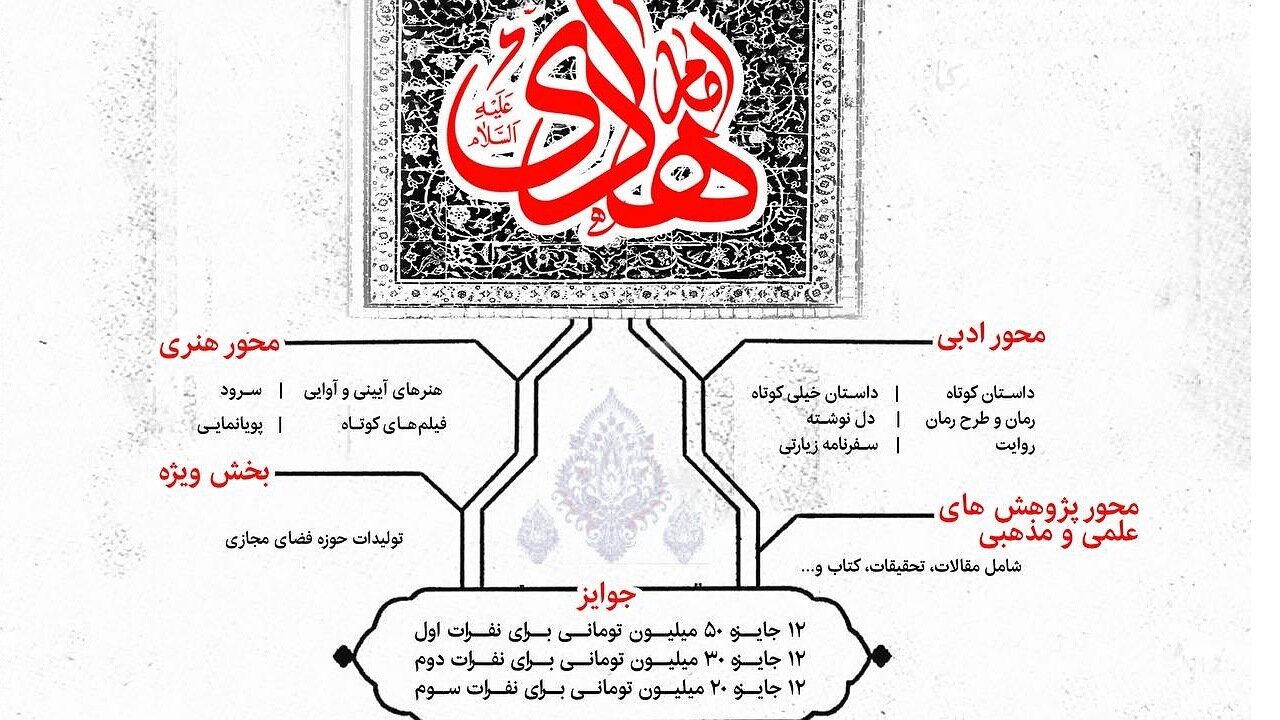 امام هادی
علیه السلام
محور ادبی
داستان کوتاه | داستان خیلی کوتاه
رمان و طرح رمان | دل نوشته
روایت | سفرنامه زیارتی
محور هنری
هنرهای آیینی و آوایی | سرود
فیلم‌های کوتاه | پویانمایی
بخش ویژه
تولیدات حوزه فضای مجازی
محور پژوهش های
علمی و مذهبی
شامل مقالات، تحقیقات، کتاب و...
جوایز
۱۲ جایزه ۵۰ میلیون تومانی برای نفرات اول
۱۲ جایزه ۳۰ میلیون تومانی برای نفرات دوم
۱۲ جایزه ۲۰ میلیون تومانی برای نفرات سوم